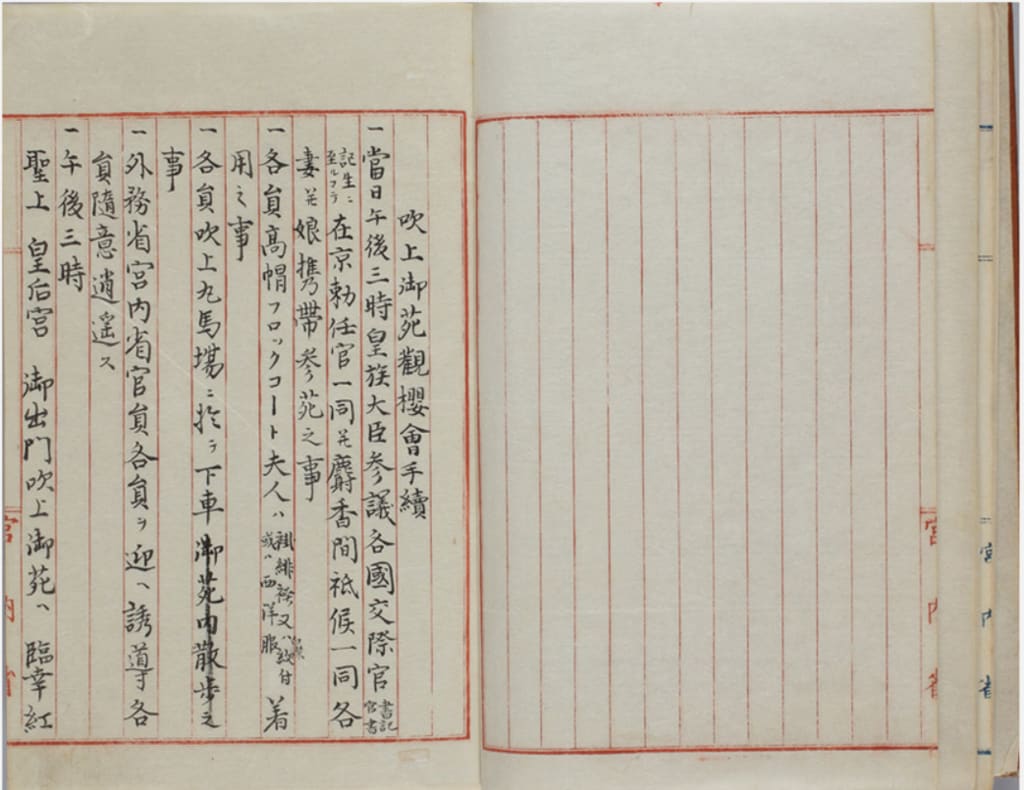 吹上御苑觀櫻會手續
一當日午後三時皇族大臣参議各國交際官書記官書
記生ニ至ルフラ在京勅任官一同幷麝香間祗候一同各
妻幷娘携帶参苑之事
一各員高帽フロックコート夫人ハ袿緋袴又ハ紋付或ハ西洋服着
用之事
一各員吹上丸馬場ニ於テ下車御苑内散歩之
事
一外務省宮内省官員各員ヲ迎ヘ誘導各
員隨意逍遥ス
一午後三時
聖上 皇后宮 御出門吹上御苑ヘ臨幸紅
宮内省
宮内省
宮内省